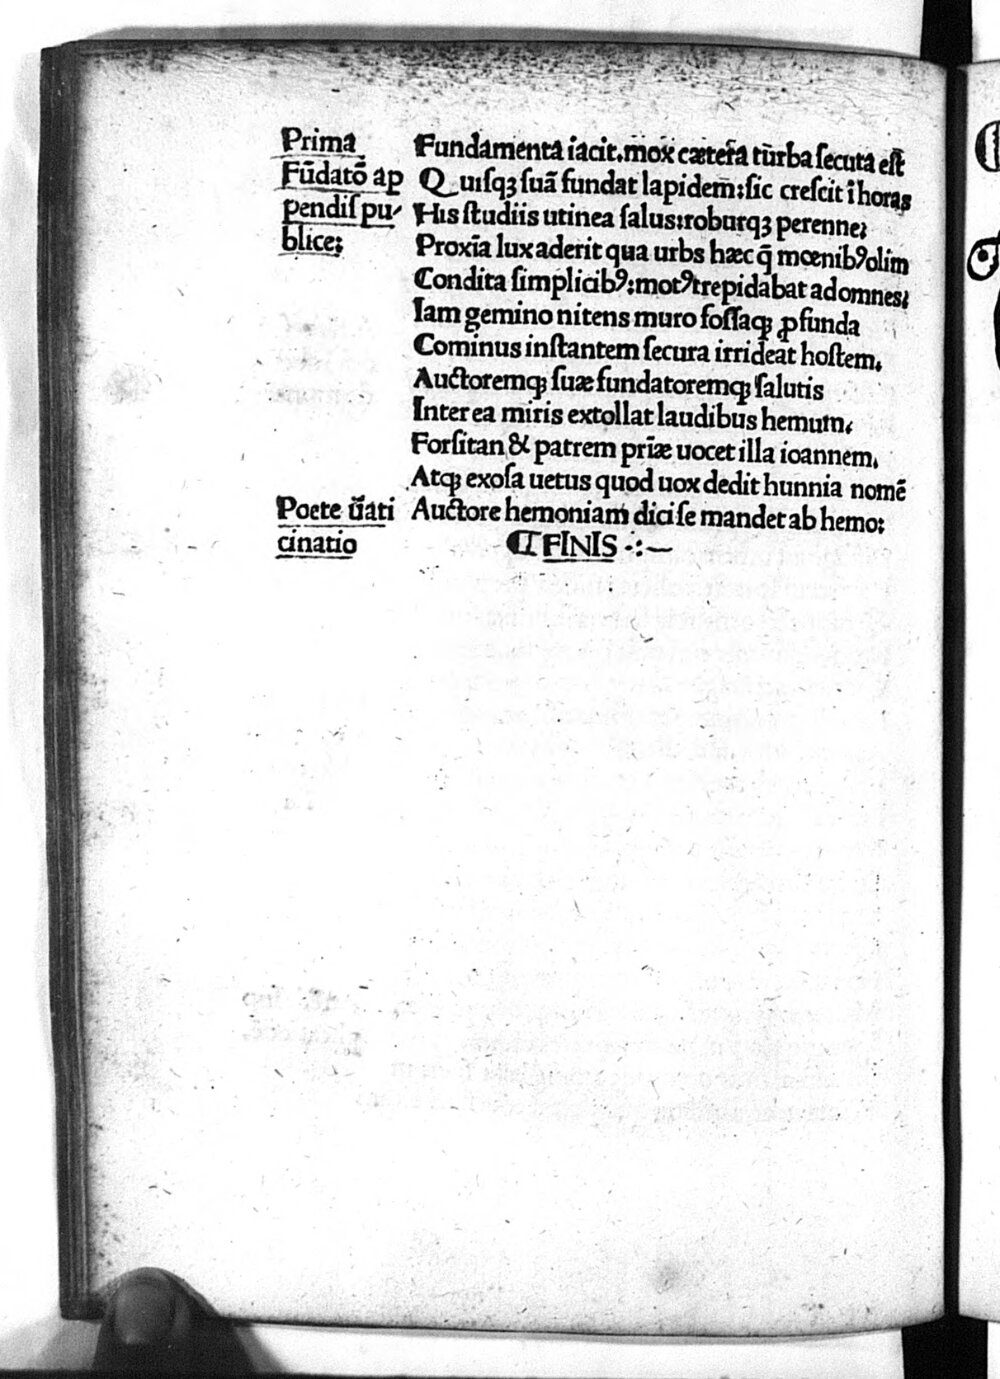 Prima
Fūdatō ap
pendiſ pu-
blice:
Fundamenta iacit. mox cætera tūrba ſecuta eſt
Quiſqꝫ ſuā fundat lapidem: ſic creſcit ī horas
His ſtudiis utinea ſalus: roburqꝫ perenne:
Proxīa lux aderit qua urbs hæc q̄ mœnibꝰ olim
Condita ſimplicibꝰ: motꝰ trepidabat ad omnes:
Iam gemino nitens muro foſſaqꝫ ꝓfunda
Cominus inſtantem ſecura irrideat hoſtem.
Auctoremqꝫ ſuæ fundatoremqꝫ ſalutis
Inter ea miris extollat laudibus hemum.
Forſitan & patrem prīæ uocet illa ioannem.
Atqꝫ exoſa uetus quod uox dedit hunnia nomē
Poete ūati
cinatio
Auctore hemoniam dici ſe mandet ab hemo:
¶ FINIS ·:—